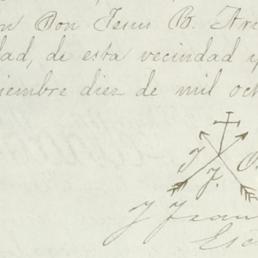 n Don Jesus B. Are
dad, de esta vecindad y
iembre diez de mil och
J. B.
J.
J Juan
Esc